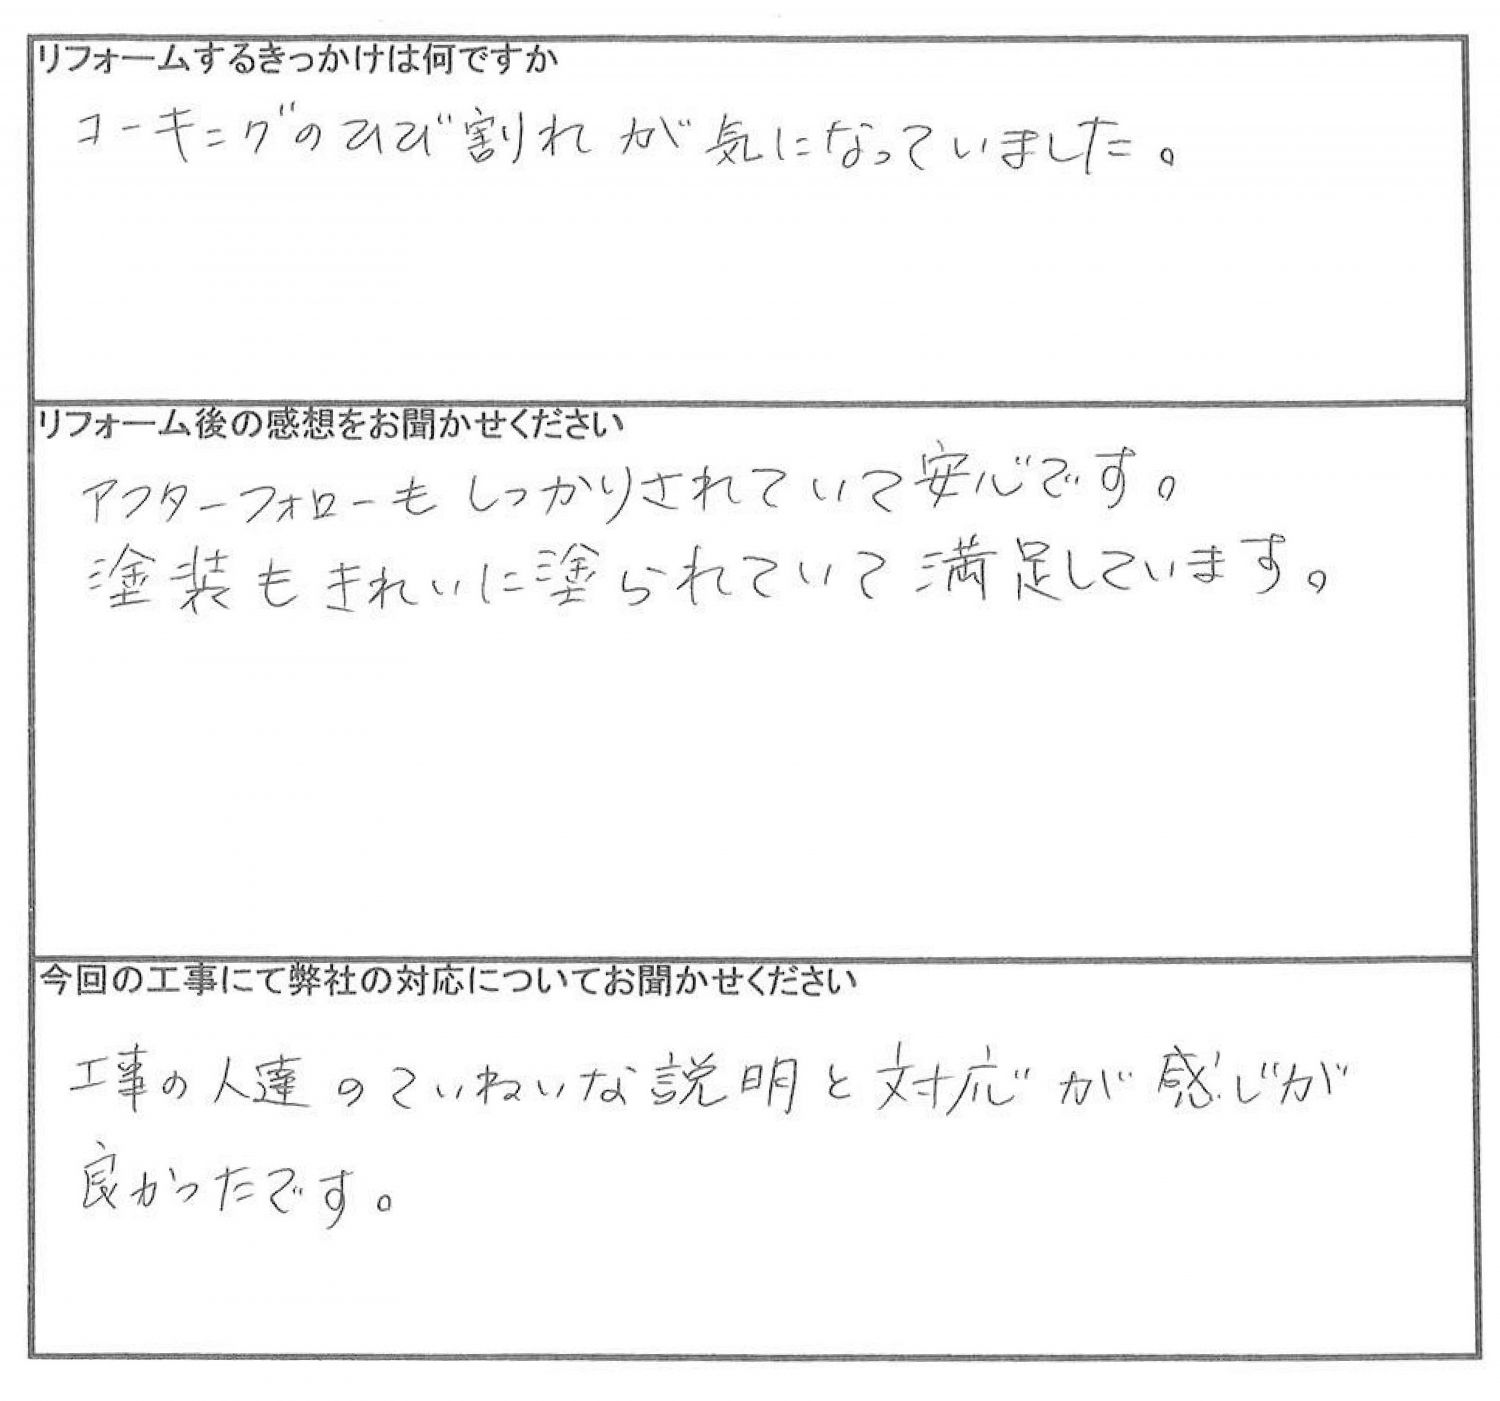 リフォームするきっかけは何ですか
コーキングのひび割れが気になっていました。
リフォーム後の感想をお聞かせください
アフターフォローもしっかりされていて安心です。
塗装もきれいに塗られていて満足しています。
今回の工事にて弊社の対応についてお聞かせください
工事の人達のていねいな説明と対応が感じが
良かったです。